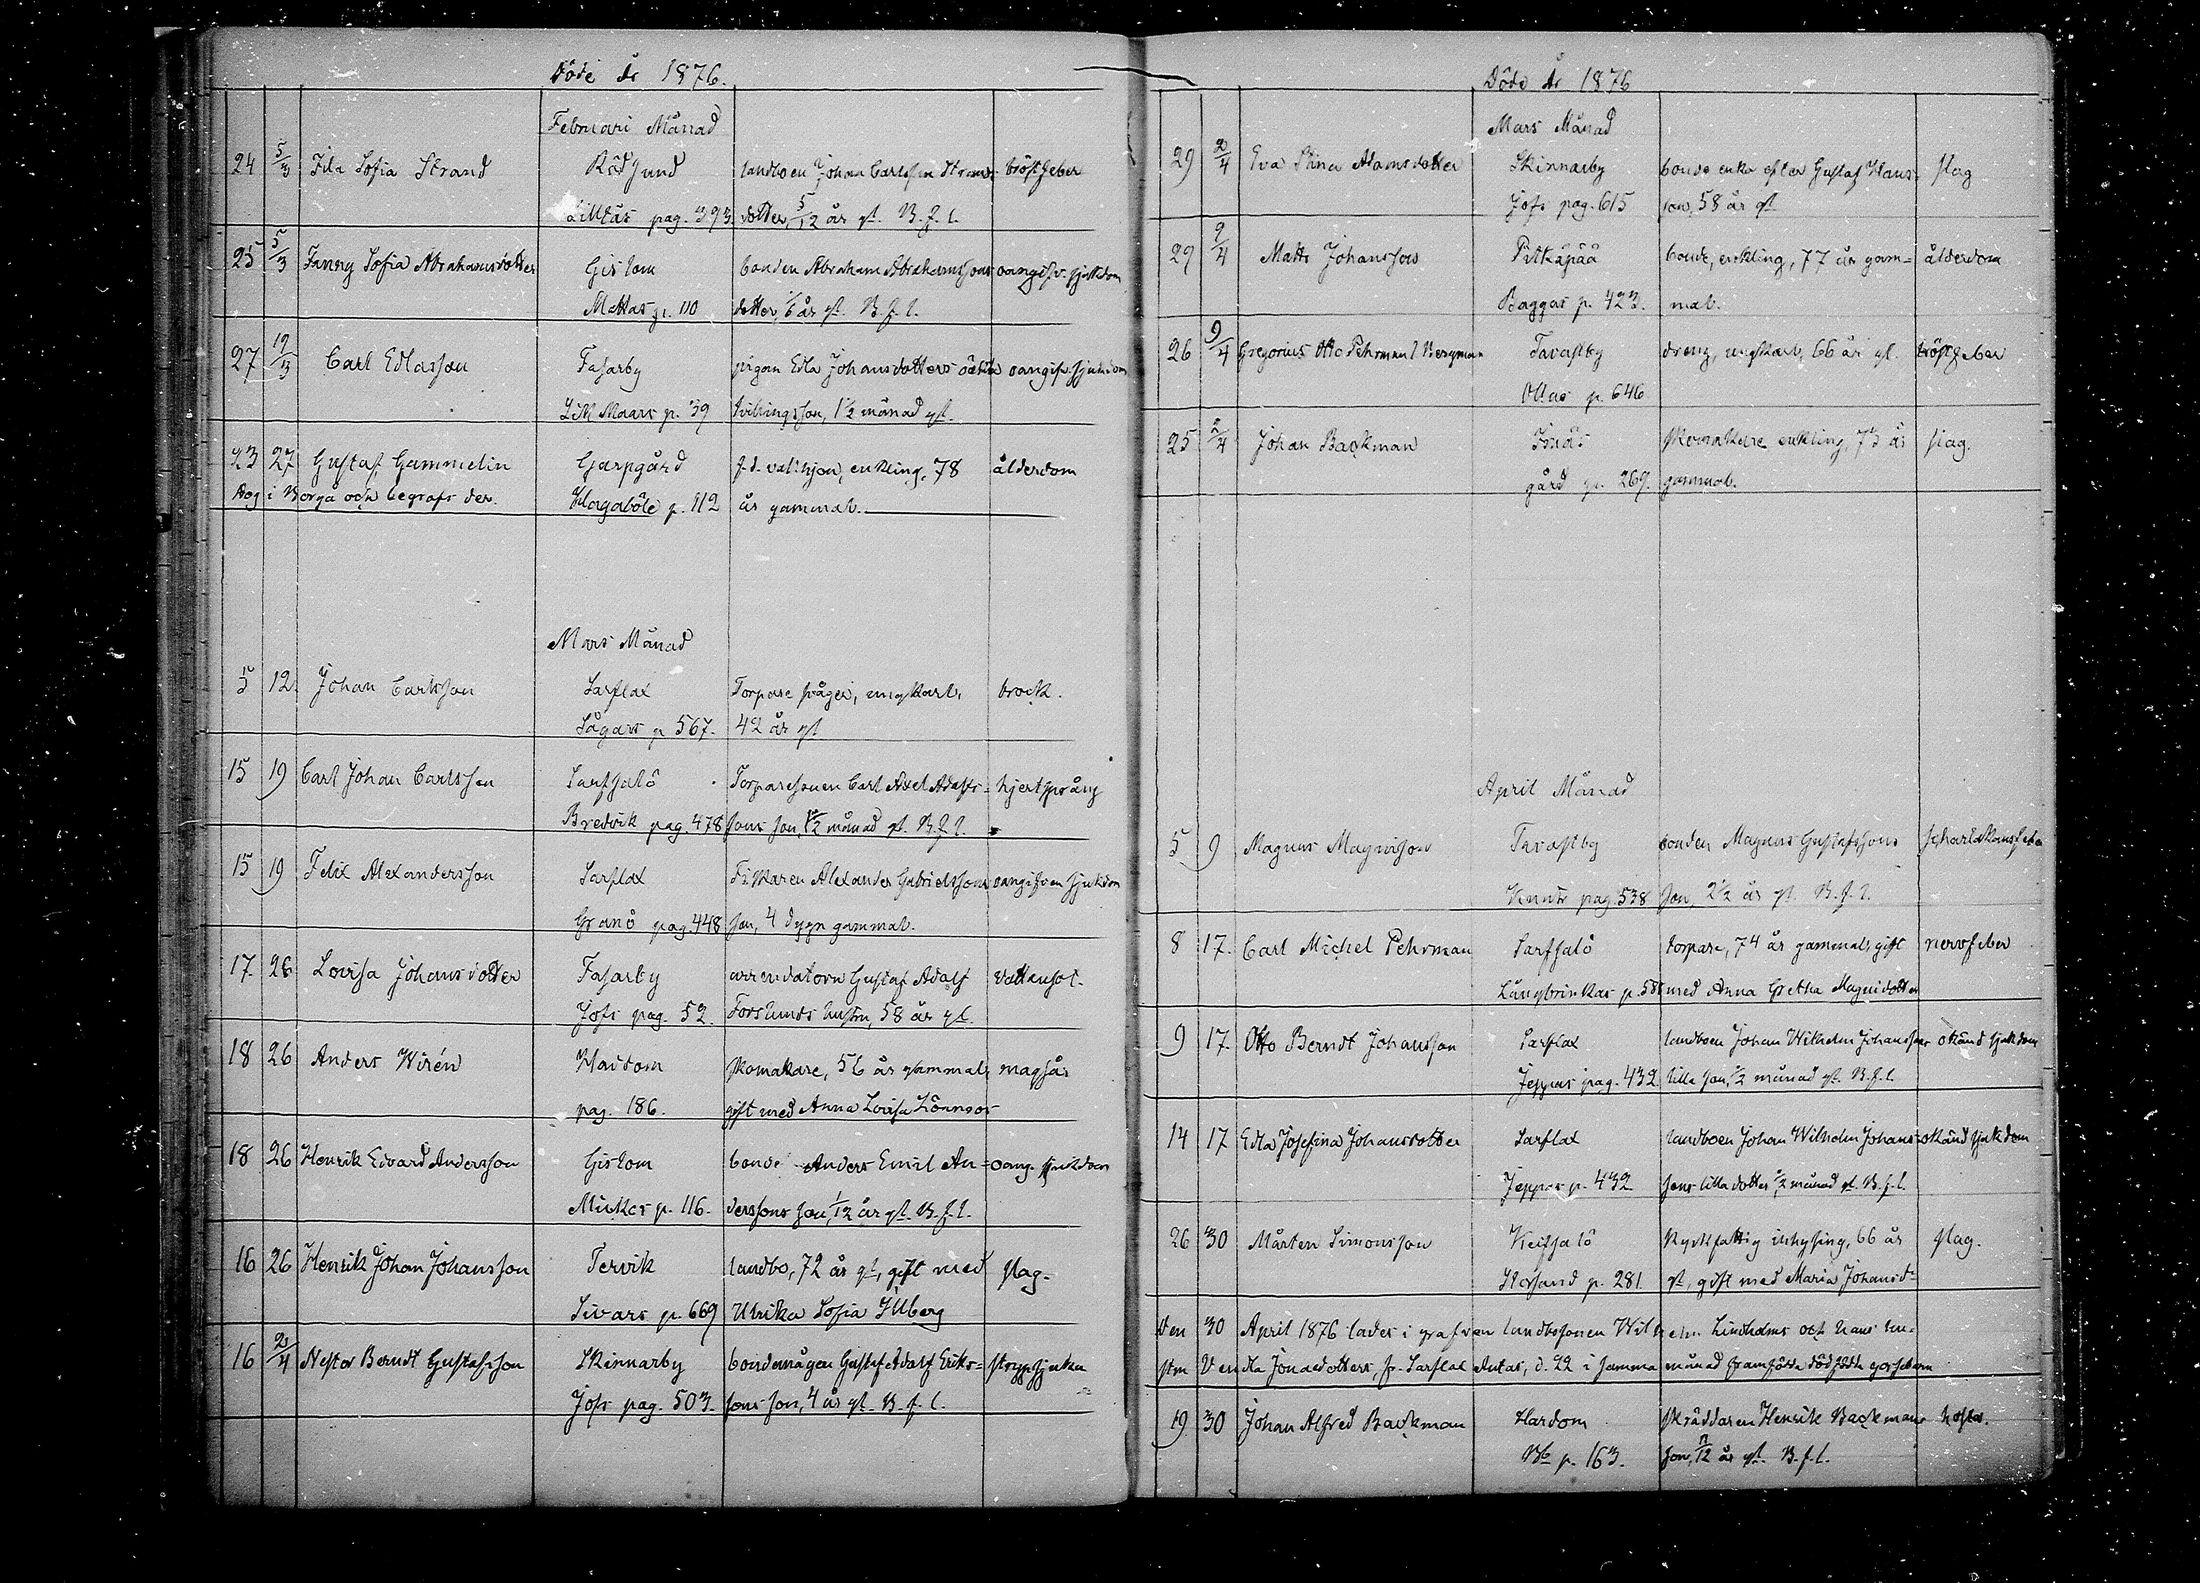 Döde år 1876.
Februari Månad
24 5/3 Ida Sofia Strand Rödsund landboen Johan Carlsson Strands bröstfeber
Lilltås pag. 393. dotter, 5/12 år gl. B. f. l.
25 5/3 Fanny Sofia Abrahamsdotter Gislom bonden Abraham Abrahamssons oangifv. sjukdom
Mattas p. 110 dotter, 1/6 år gl. B. f. l.
27 19/3 Carl Edlasson Fasarby pigan Edla Johansdotters oäkta oangif. sjukdom
Lill Maars p. 39 tvillingsson, 1 1/2 månad gl.
23 27 Gustaf Gammelin Garpgård f. d. enkling, 78 ålderdom
Dog i Borgå och begrafs der. Hagaböle p. 112 år gammal.
Mars Månad
5 12. Johan Carlsson Sarflax Torpare måger, ungkarl, brock.
Sågars p. 567. 42 år gl
15 19 Carl Johan Carlsson Sarfsalö Torparesonen Carl Axel Adolfs- hjertsprång
Bredvik pag. 478 sons son, 1/2 månad gl. B. f. l.
15 19 Felix Alexandersson Sarflax Fiskaren Alexander Gabrielssons oangifven sjukdom
Granö pag. 448 son, 4 dygn gammal.
17 26 Lovisa Johansdotter Fasarby arrendatorn Gustaf Adolf vattusot.
Jofs pag. 52. Forslunds hustru, 58 år gl.
18 26 Anders Wirén Hardom skomakare, 56 år gammal, magsår
pag. 186. gift med Anna Lovisa Lönnroos
18 26 Henrik Edvard Andersson Gislom bonde Anders Emil An- oang. sjukdom
Mickos p. 116. derssons son, 1/12 år gl. B. f. l.
16 26 Henrik Johan Johansson Tervik landbo, 72 år gl, gift med slag.
Sivars p. 669 Ulrika Sofia Illberg
16 2/4 Nestor Berndt Gustafsson Skinnarby bondemågen Gustaf Adolf Eriks- strypsjukan
Jofs pag. 503. sons son, 4 år gl. B. f. l.
Döde År 1876
Mars Månad
29 2/4 Eva Stina Adamsdotter Skinnarby bonde enka efter Gustaf Hans- slag
Jofs pag. 615 son, 58 år gl
29 9/4 Matts Johansson Pitkäpää bonde, enkling, 77 år gam- ålderdom
Baggas p. 423. mal.
26 9/4 Gregorius Otto Pehrman l Bergman Tavastby dreng, ungkarl, 66 år gl. bröstfeber
Ollas p. 646
25 2/4 Johan Backman Isnäs skomakare enkling, 73 år slag.
gård p. 269. gammal.
April Månad
5 9 Magnus Magnusson Tavastby bonden Magnus Gustafssons scharlakansfeber
Knuts pag. 538 son, 2 1/2 år gl. B. f. l.
8 17. Carl Michel Pehrman Sarfsalö torpare, 74 år gammal, gift nervfeber
Långbrinkas p. med Anna Gretha Magnidotter
9 17. Otto Berndt Johansson Sarflax landboen Johan Wilhelm Johanssons okänd sjukdom
Jeppas pag. 432 lilla son, 1/2 månad gl. B. f. l.
14 17 Edla Josefina Johansdotter Sarflax landboen Johan Wilhelm Johans- okänd sjukdom
Jeppas p. 432 sons lilla dotter, 1/2 månad gl. B. f. l.
26 30 Mårten Simonsson Keitsalö Kyrkfattig inhysing, 66 år slag.
Storsand p. 281 gl, gift med Maria Johansd-
Den 30 April 1876 lades i grafven landbosonen Wilhelm Lindholms och hans hu-
stru Vendla Jonaedotters, fr. Sarflax Antas, d. 22 i samma månad framfödda dödfödda gossebarn
19 30 Johan Alfred Backman Hardom Skräddaren Henrik Backmans hosta.
Bb p. 163. son, 11/12 år gl. B. f. l.